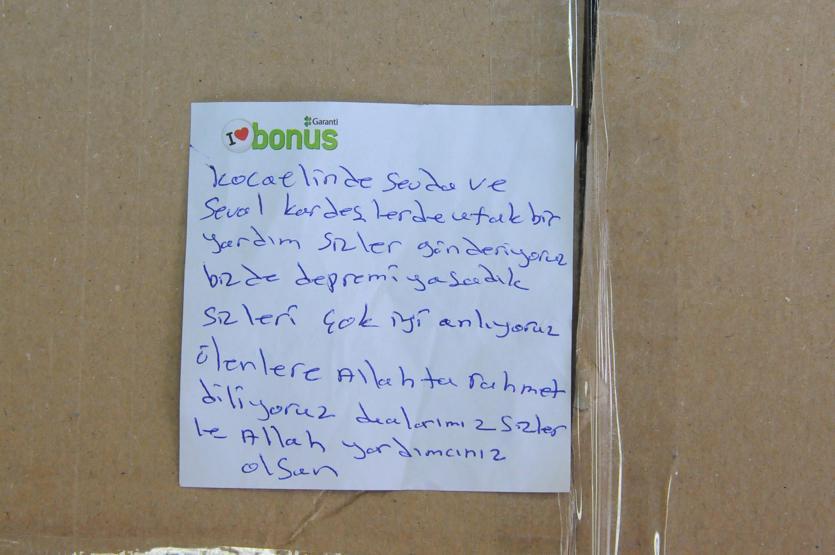 Garanti
I ♥ bonus
Kocaelinde Sevda ve
Seval kardeşlerde ufak bir
yardım sizler gönderiyoruz
bizde depremi yaşadık
sizleri çok iyi anlıyoruz
ölenlere Allahta rahmet
diliyoruz dualarımız sizler
le Allah yardımcınız
olsun